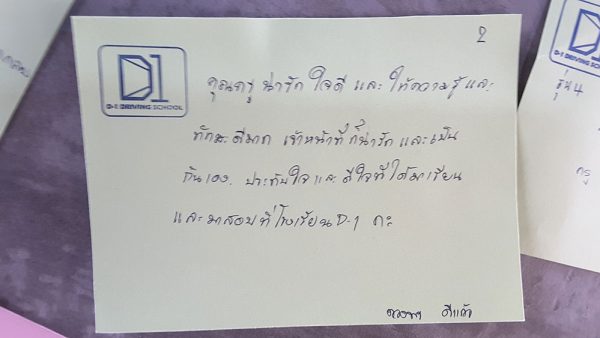 2
D-1 DRIVING SCHOOL
คุณครู น่ารัก ใจดี และ ให้ความรู้ และ
ทักษะดีมาก เจ้าหน้าที่ ก็น่ารัก และเป็น
กันเอง. ประทับใจ และ ดีใจที่ได้มาเรียน
และมาสอบที่โรงเรียน D-1 ค่ะ
ดีแก้ว
รุ่น 4
ครู